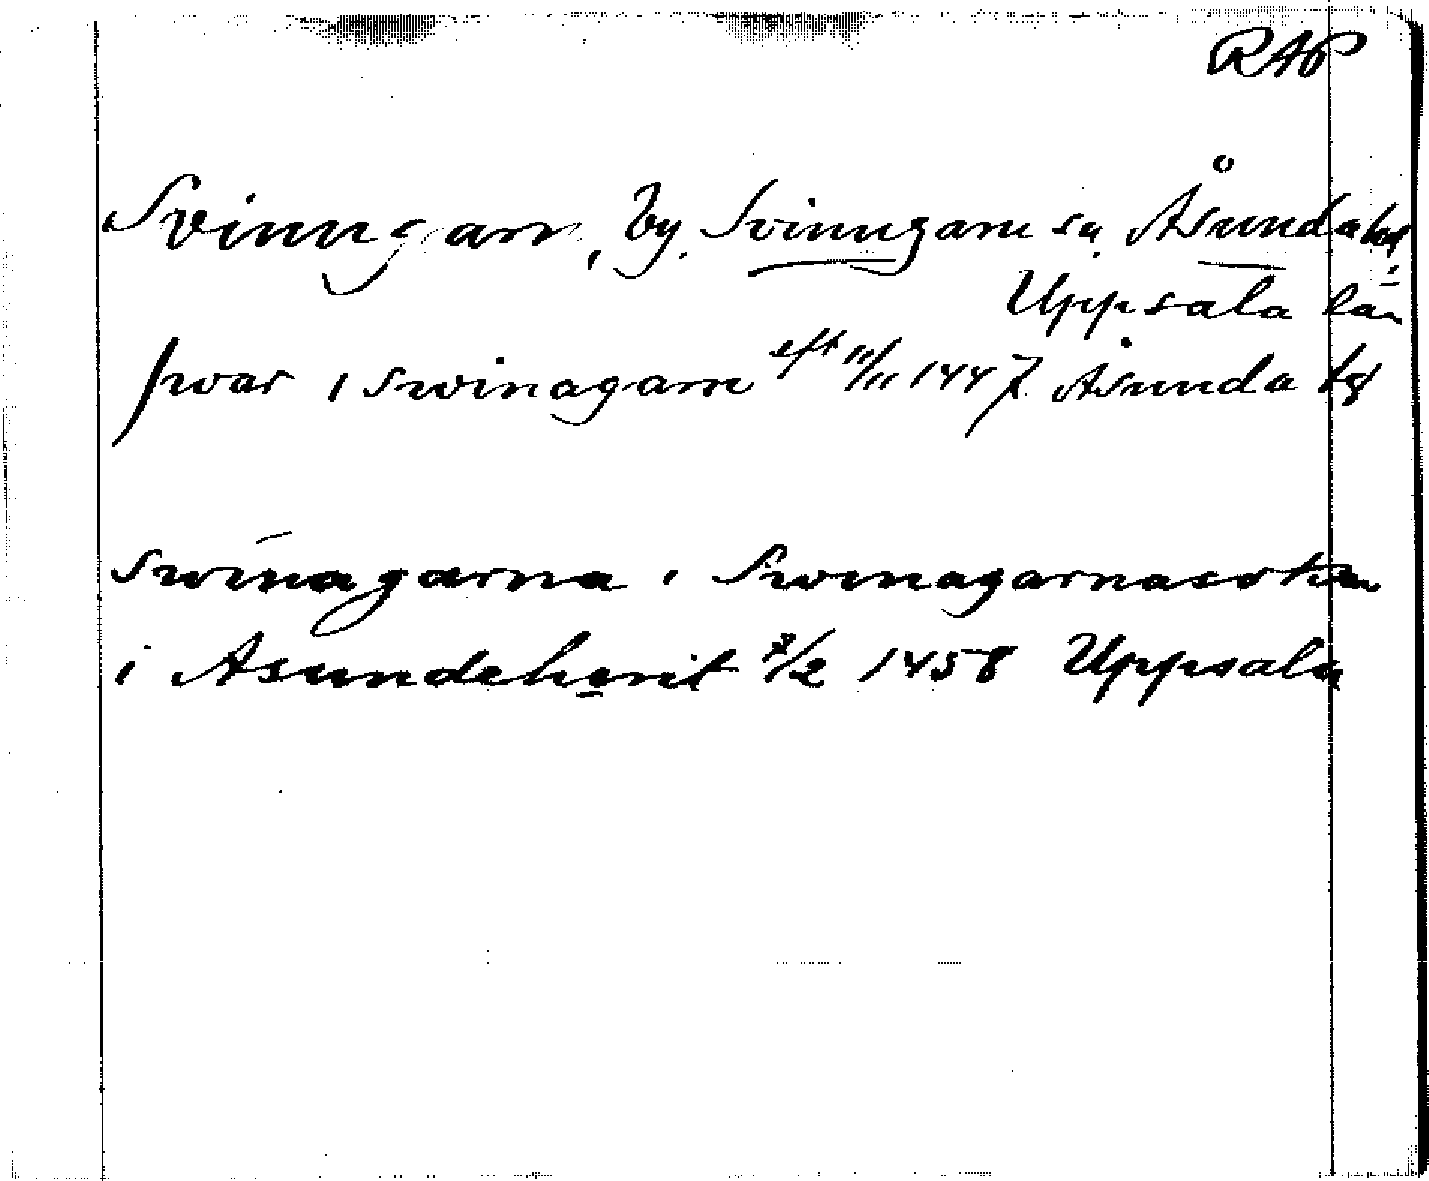 RAP
Svinngarn, by, Svinngarns sn, Åsunda hd,
Uppsala län
J war i swinagarn eft 11/11 1447 Åsunda hd
swinagarna i Swinagarnasokn
i Asundeherit 7/2 1458 Uppsala